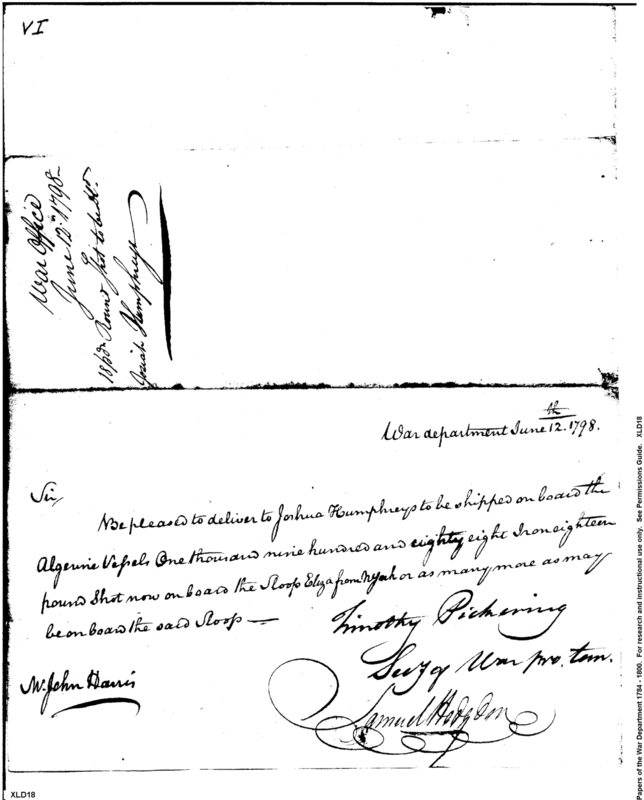 VI
War Office
June 12th 1798
18 pdr Round Shot to be dd.
Josiah Humphreys
War department June 12th. 1798.
Sir,
Be pleased to deliver to Joshua Humphreys to be shipped on board the
Algerine Vessels One thousand nine hundred and eighty eight Iron eighteen
pound Shot now on board the Sloop Eliza from NYork or as many more as may
be on board the said Sloop —
Timothy Pickering
Secy of War pro. tem.
Mr. John Harris
Samuel Hodgdon
Papers of the War Department 1784 - 1800. For research and instructional use only. See Permissions Guide. XLD18
XLD18